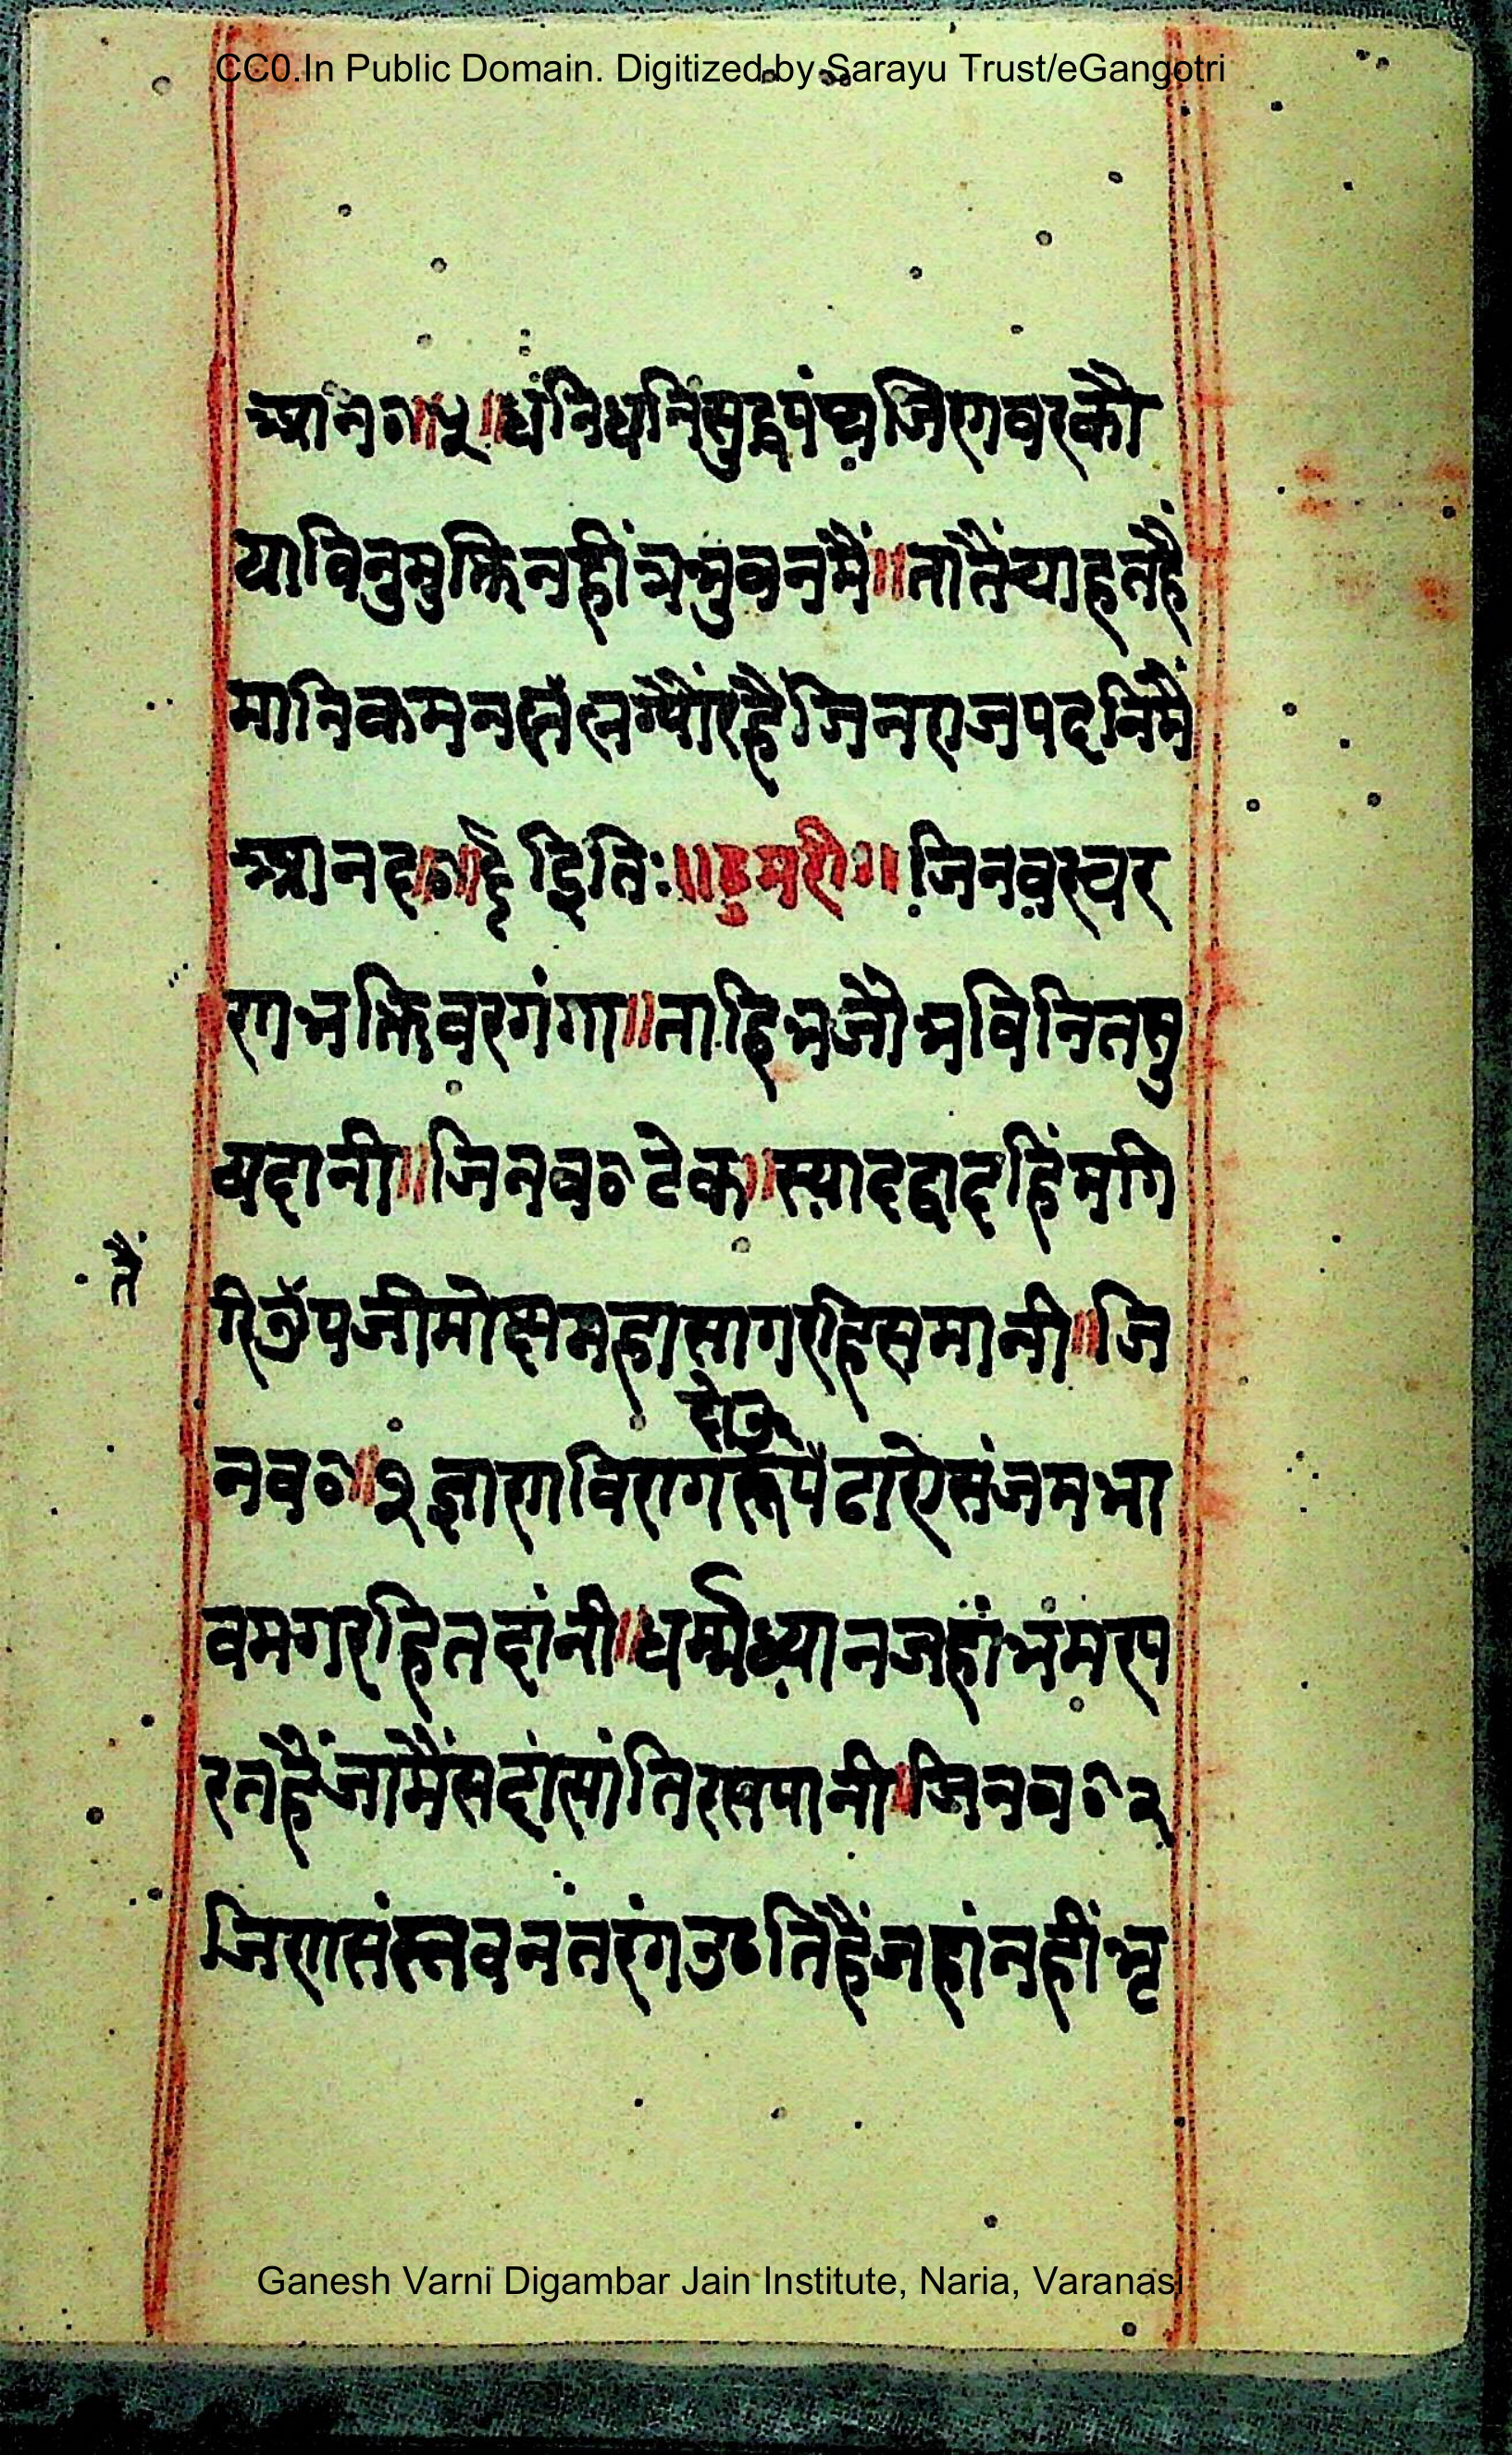 CC0.In Public Domain. Digitized by Sarayu Trust/eGangotri
आन०॥५॥धंनिधनिसुद्वपंथजिणवरकौ
याविनुमुक्तिनहींत्रभुवनमैं॥तातैंचाहतहैं
मानिकमन ग्यौंरहैजिनराजपदनिमैं
आनद०॥६इतिः॥ठुमरी॥जिनवरचर
णभक्तिवरगंगा॥ताहिभजौभविनितसु
षदानी॥जिनव०टेक॥स्यादद्वादहिमगि
तैं
रितैंउपजीमोक्षमहासागरहिसमानी॥जि
दोऊ
नव०॥१ज्ञाणविरागरूपैढाऐसंजमभा
वमगरहितदांनी॥धर्म्मध्यानजहांभंमरप
रतहैंजामैंसदांसांतिरसपानी॥जिनव०२
जिणसंस्तवनतरंगउठतिहैंजहांनहींभृ
Ganesh Varni Digambar Jain Institute, Naria, Varanasi